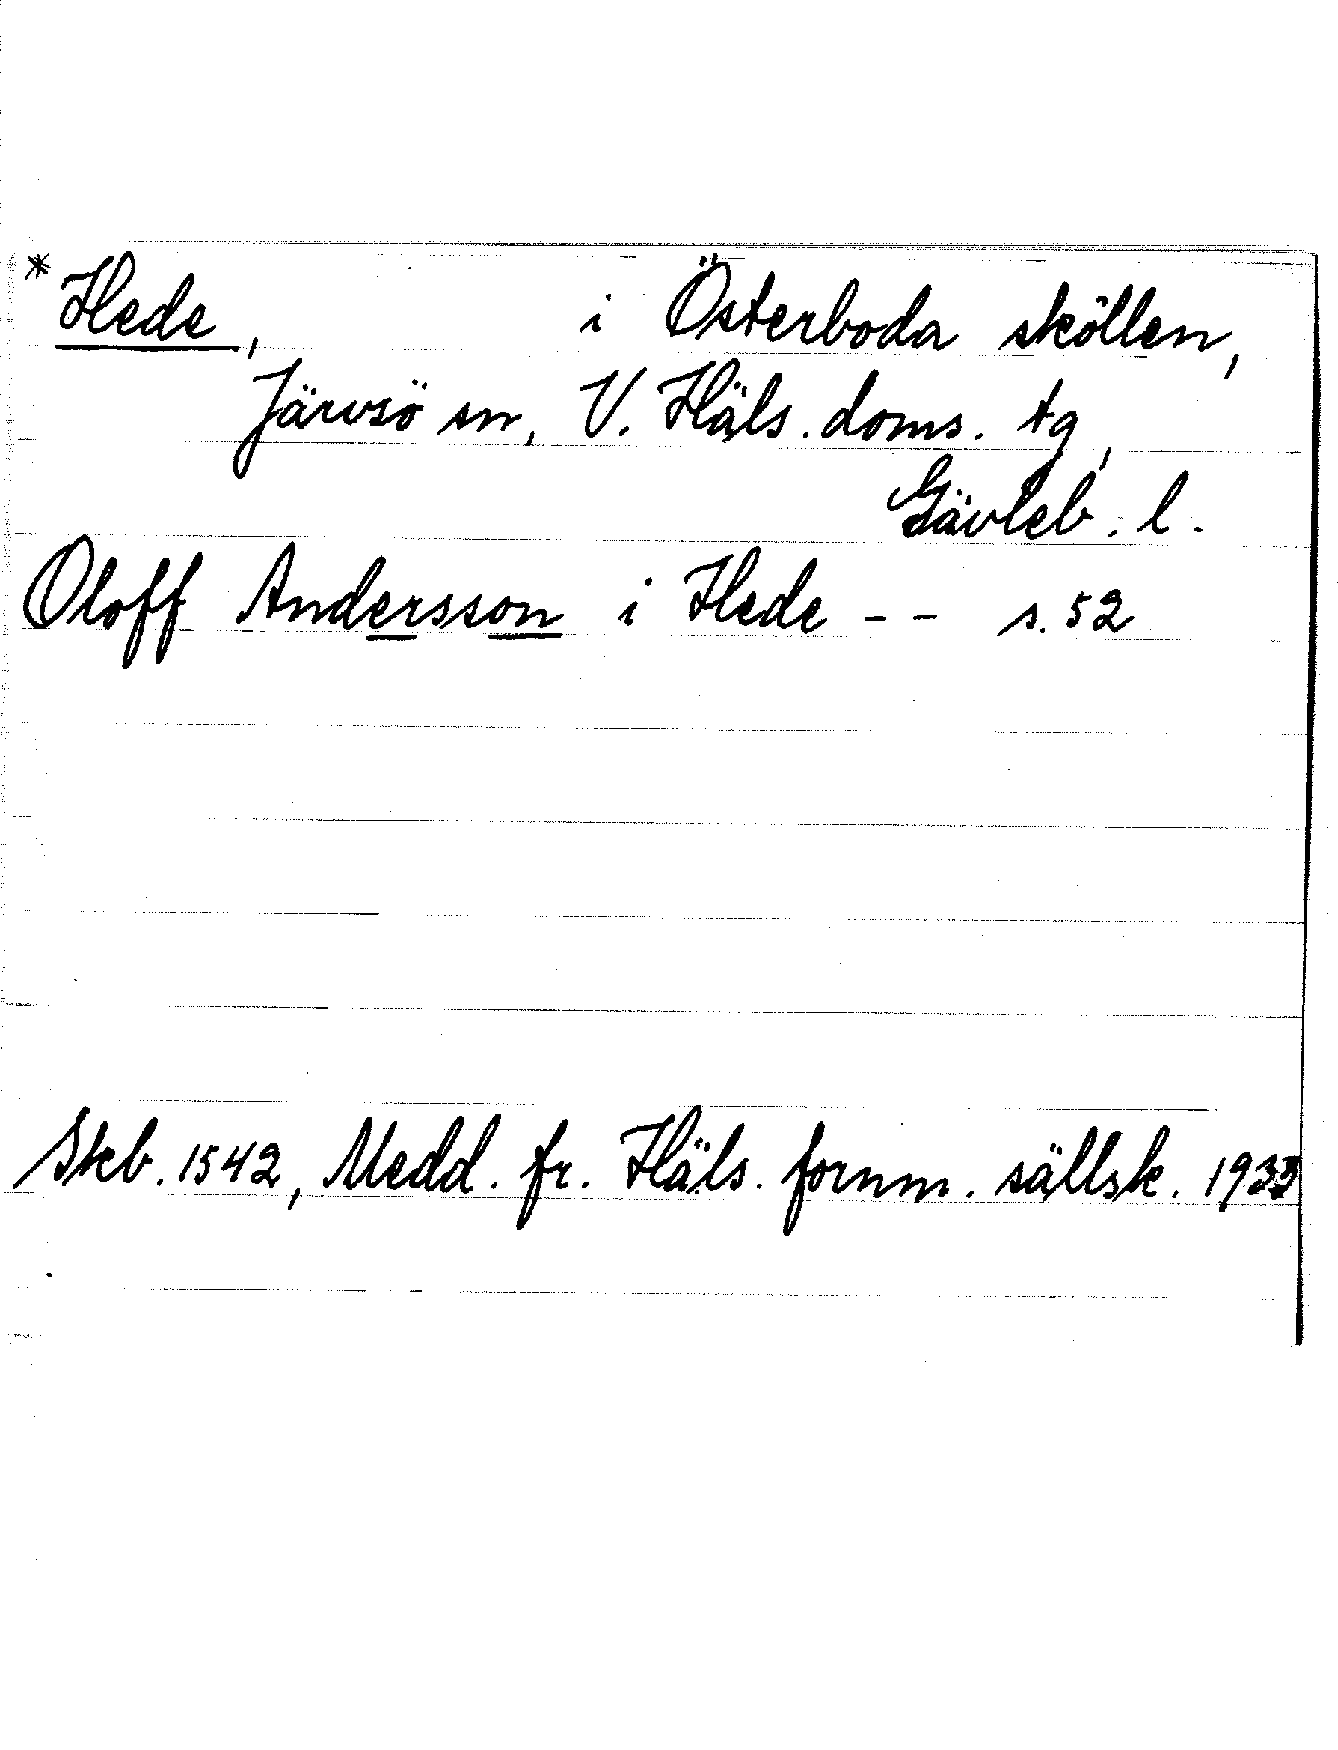 * Hede, i Österboda sköllen,
Järvsö sn, V. Häls. doms. tg,
Gävleb. l.
Oloff Andersson i Hede -- s. 52
Skb. 1542, Medd. fr. Häls. fornm. sällsk. 1933